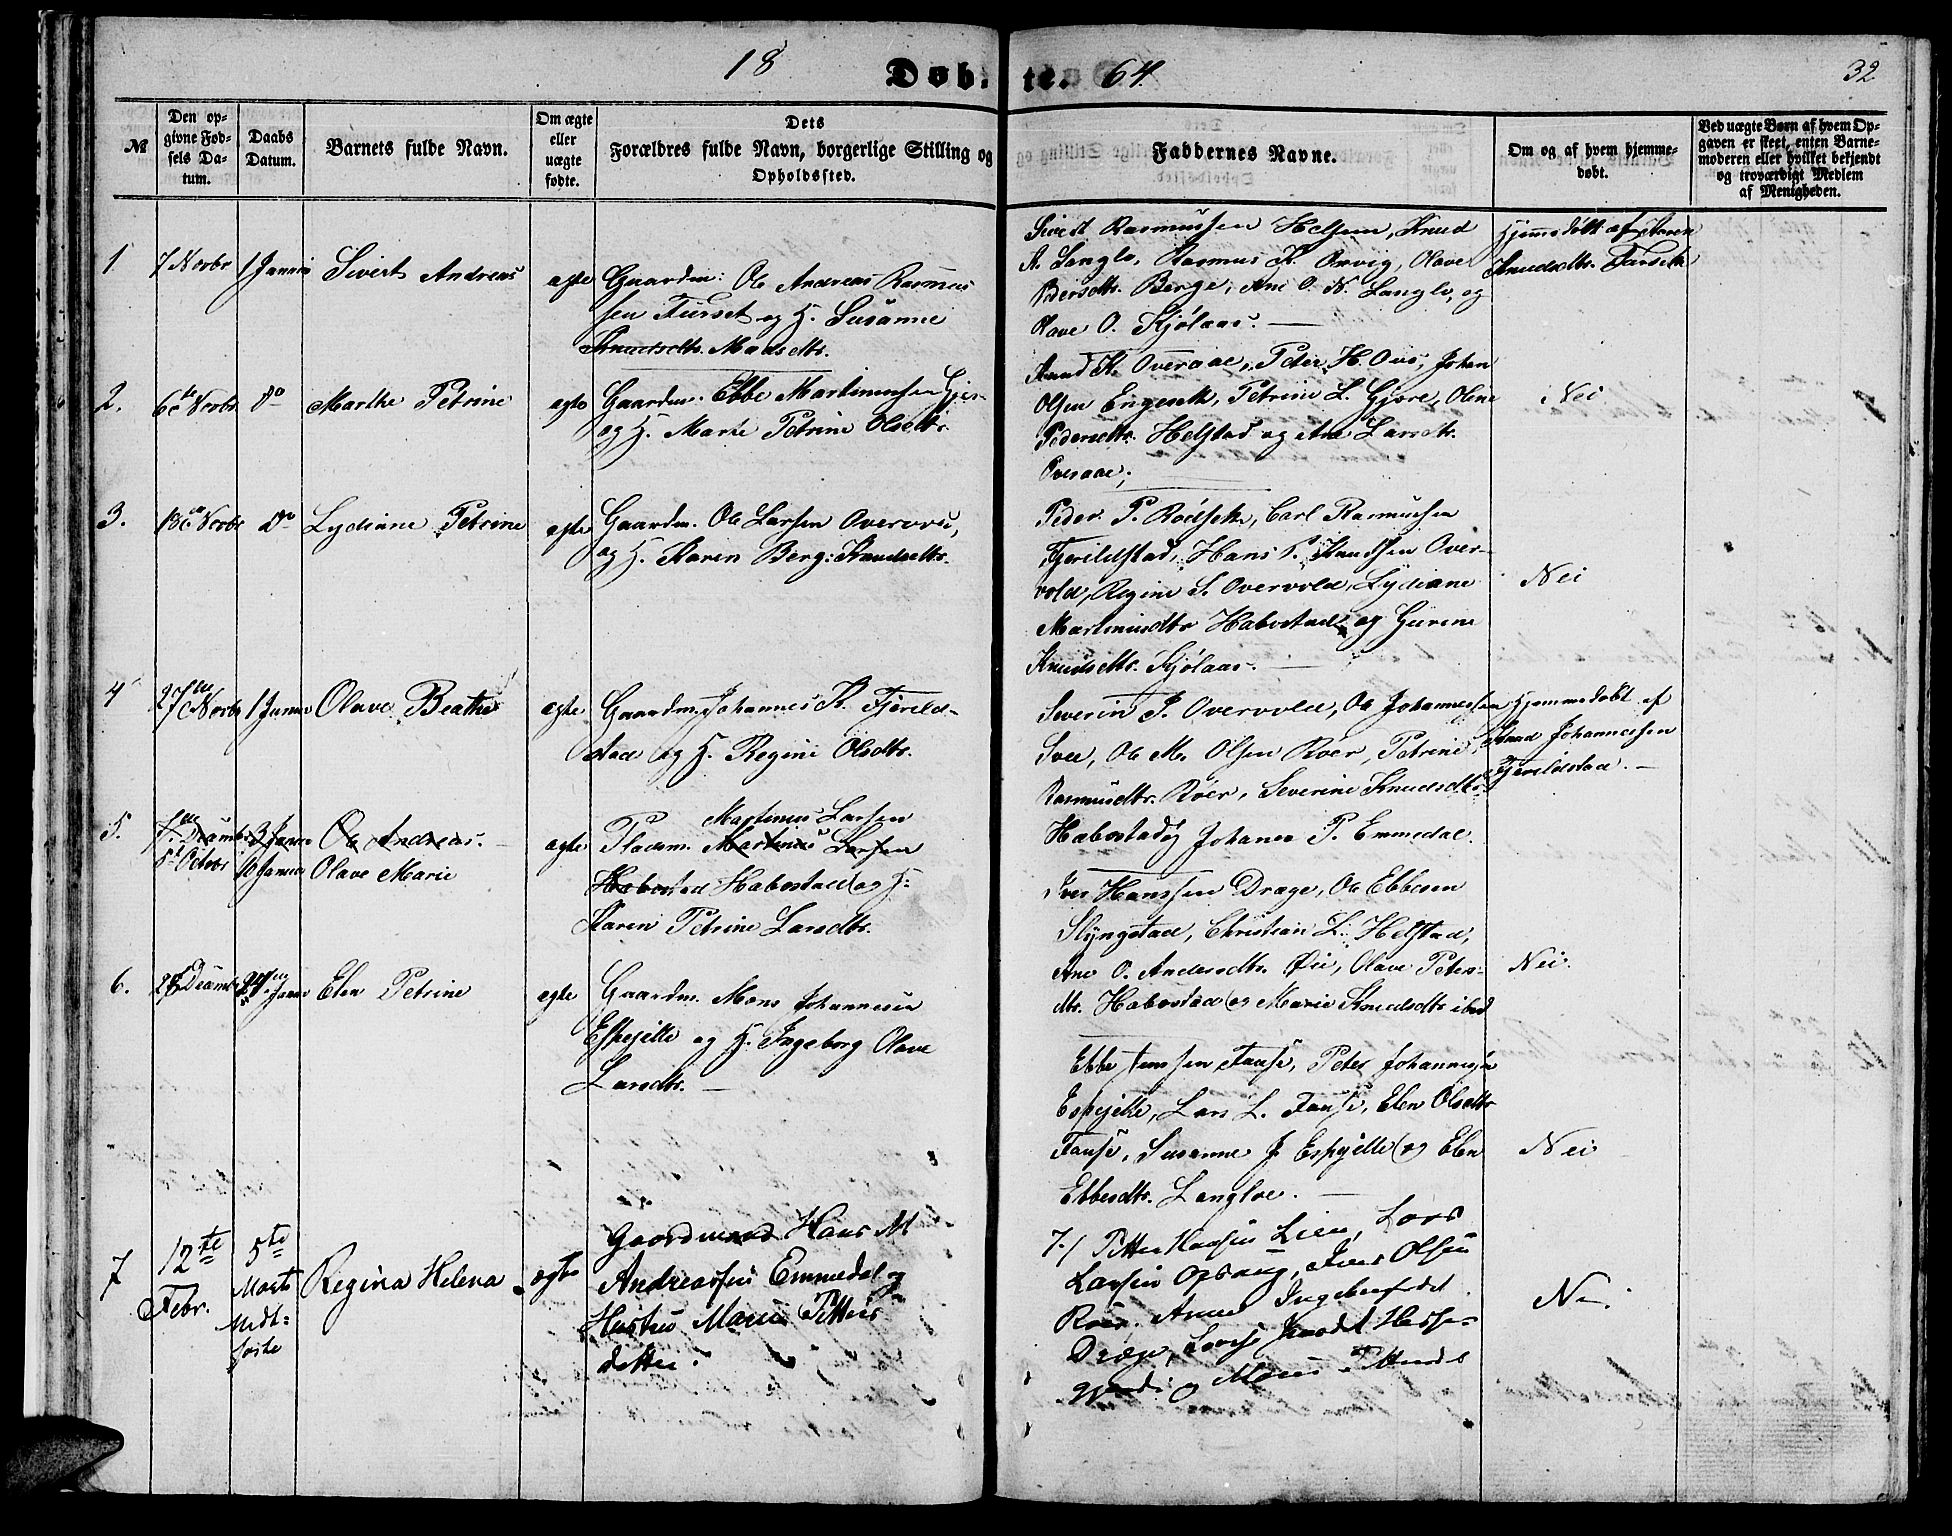 18 Døb-te. 64. 32
№
Den op-
givne Fød-
sels Da-
tum.
Daabs
Datum.
Barnets fulde Navn.
Om ægte
eller
uægte
fødte.
Dets
Forældres fulde Navn, borgerlige Stilling og
Opholdssted.
Faddernes Navne.
Om og af hvem hjemme-
døbt.
Ved uægte Børn af hvem Op-
gaven er skeet, enten Barne-
moderen eller hvilket bekjendt
og troværdigt Medlem
af Menigheden.
1. 7 Novbr 1 Januar Sivert Andreas ægte
Gaardm: Ole Andreas Rasmus
sen Furset og H. Susanne
Knudsdtr. Madsdtr.
Sivert Rasmussen Helsem, Knud
A. Langlo, Rasmus K. Ørvig, Olave
Pedersdtr. Berge, Ane O. N. Langlo, og
Olave O. Kjølaas.
Hjemmedøbt af Karen
Knudsdtr. Furseth
2. 6te Novbr do Marthe Petrine ægte
Gaardm. Ebbe Martinussen
og H. Marte Petrine Olsdtr.
Knud K. Overaae, Peter H. Øvs, Johan
Olsen Engeseth, Petrine L. Gjøre, Oline
Pedersdtr. Helstad og Ane Larsdtr.
Overaae;
Nei
3. 18de Novbr do Lydiane Petrine ægte
Gaardm. Ole Larsen Overvold,
og H. Karen Berg: Knudsdtr.
Peder P. Rødseth, Carl Rasmussen
Fjerildstad, Hans P. Knudsen Over-
vold, Regine S. Overvold, Lydiane
Martinusdtr Habostad og Gurine
Knudsdtr. Kjølaas.
Nei
4 27de Novbr 1 Januar Olave Beathe ægte
Gaardm. Johannes K. Fjerild-
stad og H. Regine Olsdtr.
Severin P. Overvold, Ole Johannessen
Svee, Ole M. Olsen Røer, Petrine
Rasmusdtr. Røer, Severine Knudsdtr.
Habostad og Johane P. Emmedal.
Hjemmedøbt af
Knud Johannessen
Fjerildstad.
5. 7de Decembr 3 Januar Ole Andreas.
5te Octobr 10 Januar Olave Marie ægte
Martinus Larsen
Pladsm. Martinus Larsen
Habostad Habostad og H:
Karen Petrine Larsdtr.
Iver Hanssen Drage, Ole Ebbesen
Slyngstad, Christian L. Helstad,
Ane O. Andersdtr. Øie, Olave Peters-
dtr. Habostad og Marie Knudsdtr ibid
Nei.
6. 28 Decembr 24 Januar Elen Petrine ægte
Gaardm. Mons Johannesen
Espejelle og H. Ingeborg Olave
Larsdtr.
Ebbe Jenssen Fause, Peter Johannesen
Espejelle, Lars L. Fause, Elen Olsdtr
Fause, Susanne J. Espejelle og Elen
Ebbesdtr. Langloe.
Nei
7 12te
Febr.
5te
Marts
Midt-
faste
Regina Helena ægte
Gaardmand Hans M
Andreassen Emmedal og
Hustru Marie Petters
datter.
7./ Petter Hansen Lien, Lars
Larsen Opsaug, Iver Olsen
Røer. Anne Ingebersdtr
Drage, Lovise Knudsdt Hesse-
og Marie Petersdt
Nei.